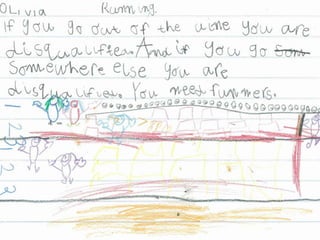 OLIVIA Running.
If you go out of the line you are
disqualified. And if you go
Somewhere else you are
disqualified. You need runners.
1
2
3